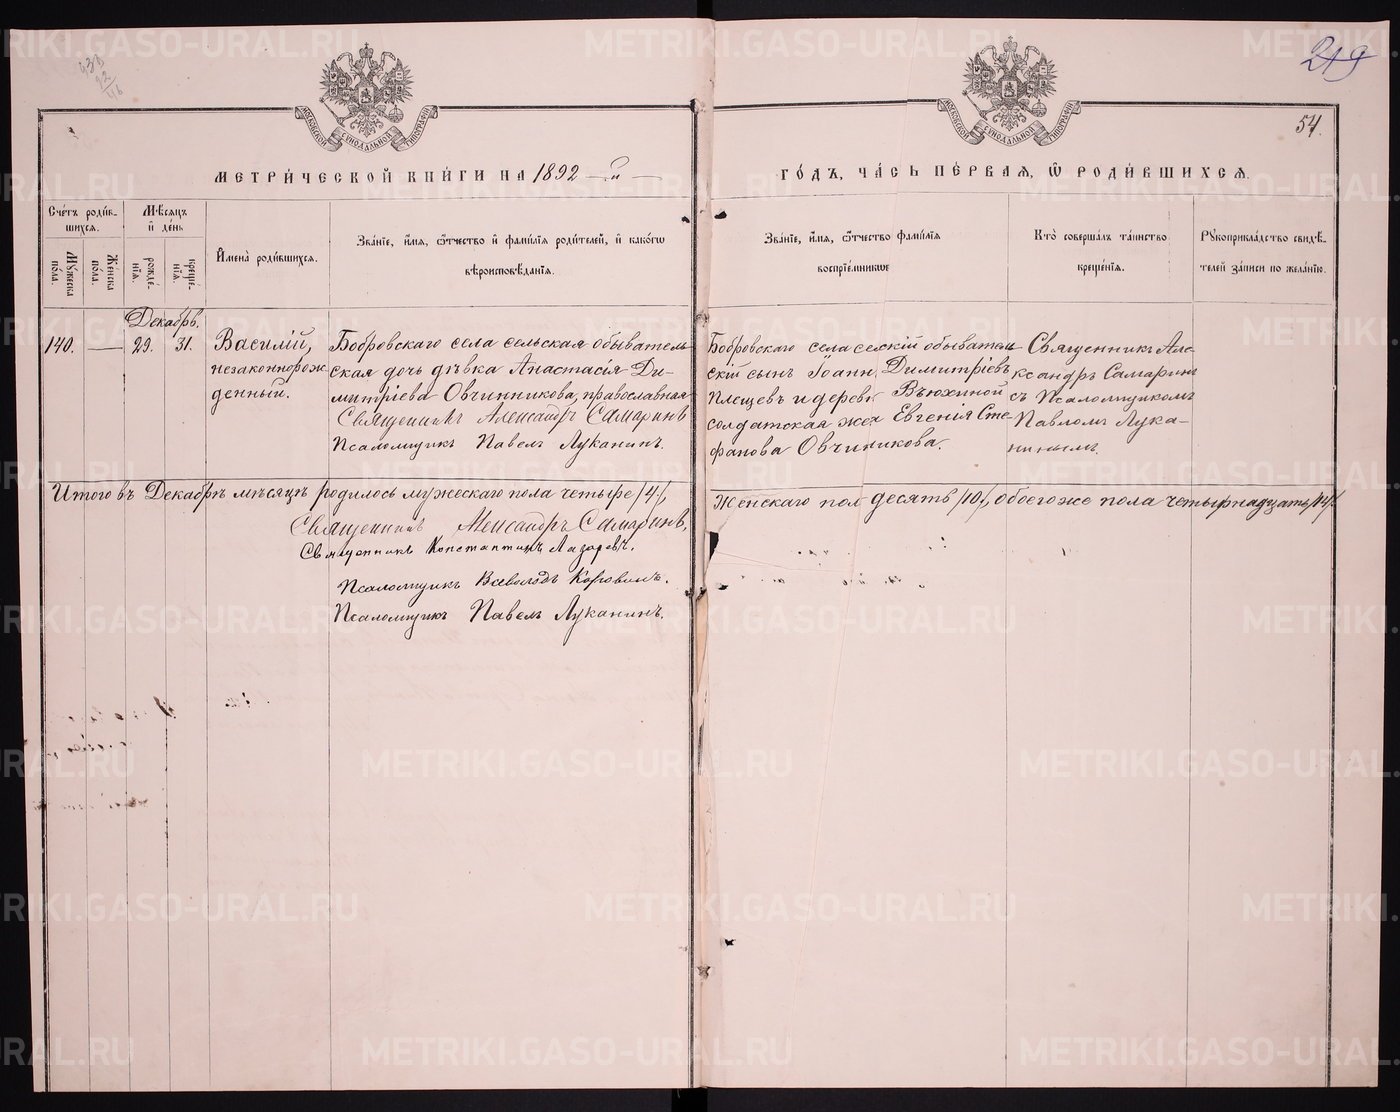 219
54.
МОСКОВСКОЙ СУНОДАЛЬНОЙ ТИПОГРАФІИ
МОСКОВСКОЙ СУНОДАЛЬНОЙ ТИПОГРАФІИ
МЕТРИ́ЧЕСКОЙ КНИ́ГИ НА 1892 — й —
ГО́ДЪ, ЧА́СЬ ПЕ́РВАЯ, Ѡ РОДИ́ВШИХСЯ.
Сче́тъ роди́в-
шихся.
Мѣ́сяцъ
и де́нь
Му́жеска пола.
Же́нска пола.
рожде́-
нїя.
креще́-
нїя.
И́мена роди́вшихся.
Зва́нїе, и́мя, ѻ́тчество и фами́лїя роди́телей, и како́гѡ
вѣроисповѣ́данїя.
Зва́нїе, и́мя, ѻ́тчество фами́лїя
воспрїе́мникѡв
Кто̀ соверша́лъ та́инство
креще́нїя.
Рꙋкоприкла́дство свидѣ́-
телей за́писи по жела́нїю.
Декабрь.
140. — 29. 31.
Василій,
незаконнорож-
денный.
Бобровскаго села сельская обыватель-
ская дочь дѣвка Анастасія Ди-
митріева Овчинникова, православная
Священникъ Александръ Самаринъ
Псаломщикъ Павелъ Луканинъ.
Бобровскаго села селскій обыватель-
скій сынъ Іоаннъ Димитріевъ
Плещевъ и деревн Вьюхиной
солдатская жена Евгенія Сте-
фанова Овчиникова.
Священникъ Але-
ксандръ Самаринъ
съ Псаломщикомъ
Павломъ Лука-
нинымъ.
Итого въ Декабрѣ мѣсяцѣ родилось мужескаго пола четыре /4/,
Женскаго пол десять /10/, обоего же пола четырнадцать /14/.
Священникъ Александръ Самаринъ,
Священникъ Константинъ Лазаревъ.
Псаломщикъ Всеволодъ Коровинъ.
Псаломщикъ Павелъ Луканинъ.
METRIKI.GASO-URAL.RU